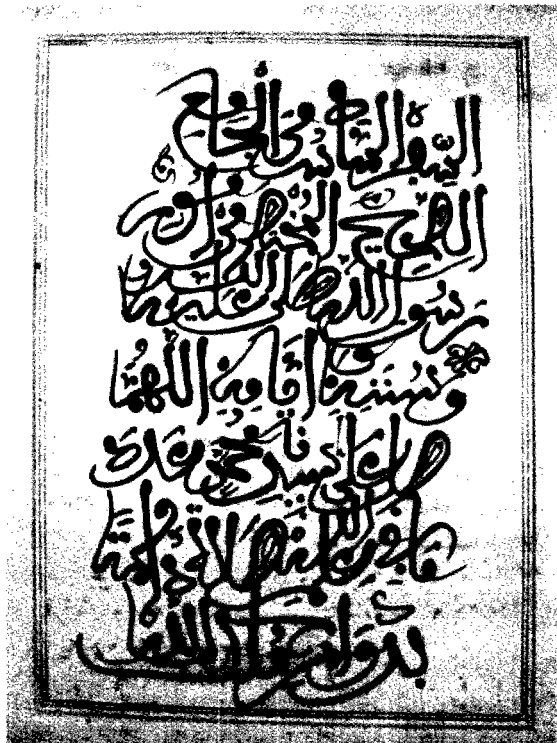 السفر من الجامع
الصحيح المختصر من امور
رسول الله صلى الله عليه وسلم
وسننه وايامه اللهم
صل على سيدنا محمد عدد
ما في علم الله صلاة دائمة
بدوام ملك الله